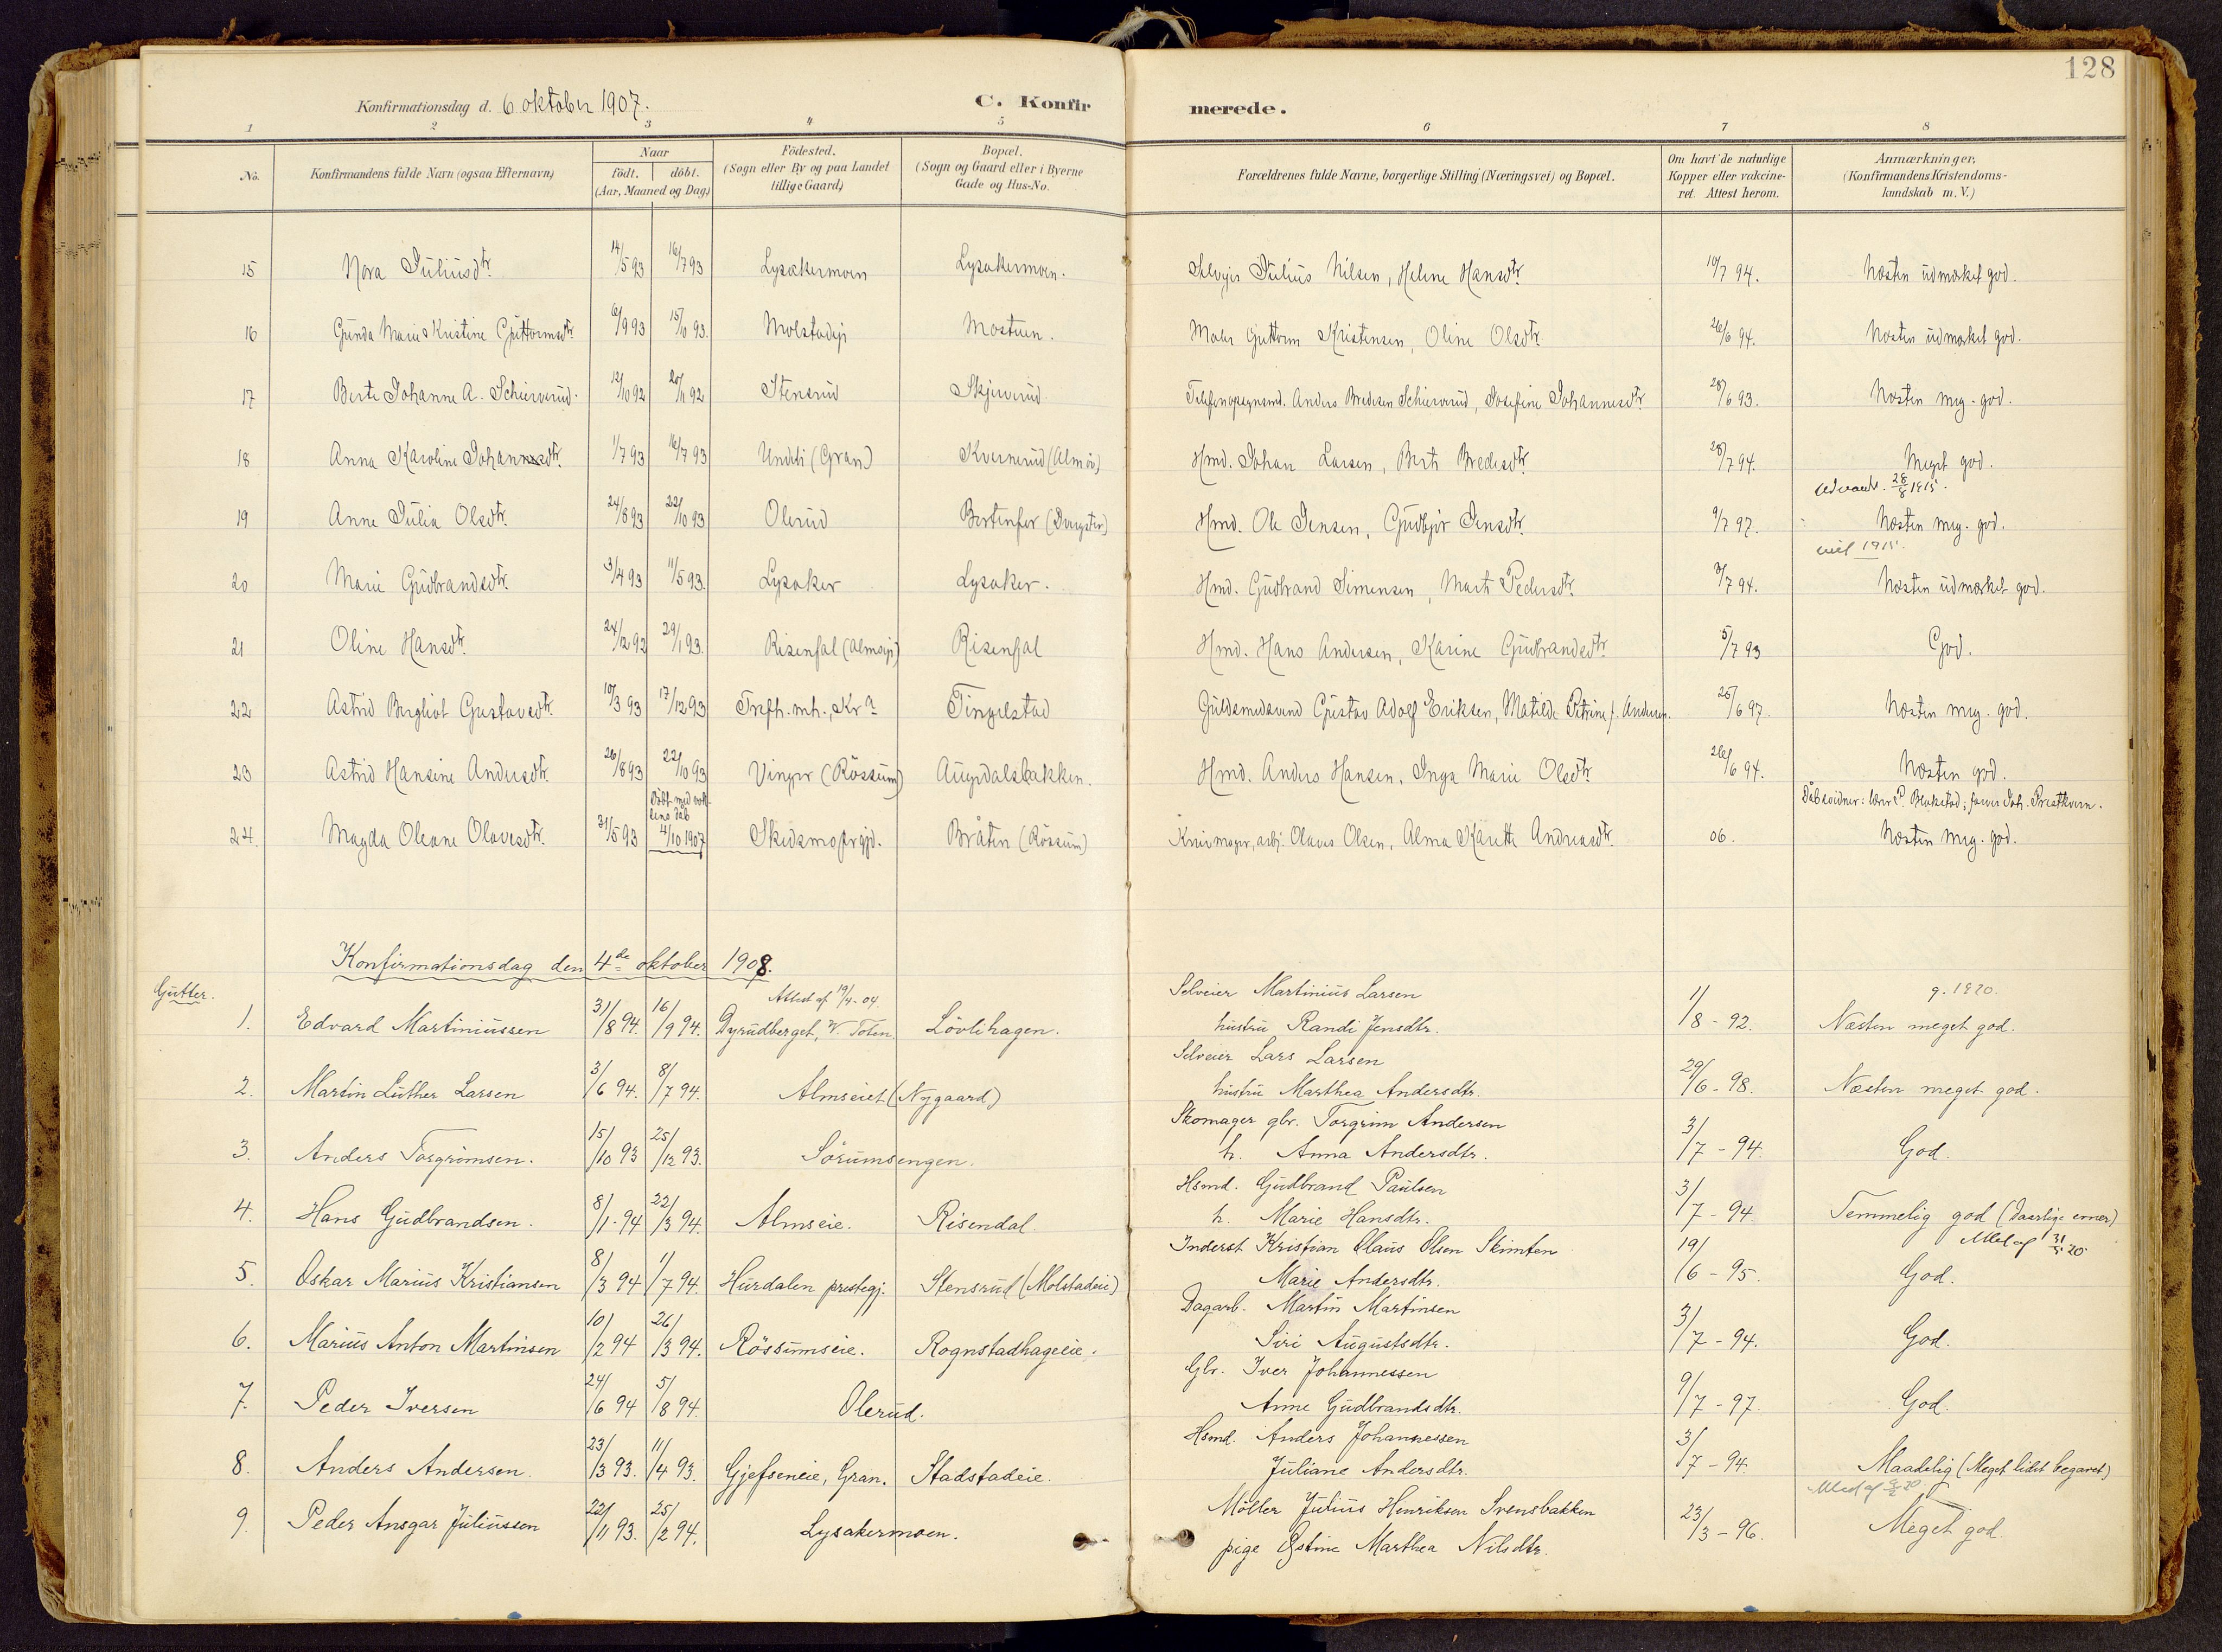 128
Konfirmationsdag d. 6 oktober 1907. C. Konfirmerede.
1 2 3 4 5 6 7 8
No. Konfirmandens fulde Navn (ogsaa Efternavn) Naar födt. döbt. (Aar, Maaned og Dag) Födested. (Sogn eller By og paa Landet tillige Gaard) Bopæl. (Sogn og Gaard eller i Byerne Gade og Hus-No. Forældrenes fulde Navne, borgerlige Stilling (Næringsvei) og Bopæl. Om havt de naturlige Kopper eller vakcineret. Attest herom. Anmærkninger, (Konfirmandens Kristendomskundskab m. V.)
15 Nora Juliusdtr. 14/5 93 16/7 93 Lysakermoen Lysakermoen. Selveier Julius Nilsen, Helene Hansdtr. 10/7 94. Næsten udmærket god.
16 Gunda Marie Kristine Guttormsdtr. 6/9 93 15/10 93. Molstadeje Mostuen. Maler Guttorm Kristensen, Oline Olsdtr. 26/6 94. Næsten udmærket god.
17 Berte Johanne A. Schierverud. 12/10 92 20/11 92 Stensrud Skjerverud Anders Bredesen Schierverud, Josefine Johannesdtr. 28/6 93. Næsten meg. god.
18 Anna Karoline Johannsdtr. 1/7 93 16/7 93 (Gran) Kvernerud Hmd. Johan Larsen, Berte Bredesdtr. 28/7 94. Meget god.
28/8 1915.
19 Anne Julia Olsdtr. 24/8 93 22/10 93 Olerud Hmd. Ole Jensen, Gudbjør Jensdtr. 9/7 97. Næsten meg. god.
1915.
20 Marie Gudbrandsdtr. 3/4 93 11/5 93. Lysaker Lysaker. Hmd. Gudbrand Simensen, Marte Pedersdtr. 3/7 94. Næsten udmærket god.
21 Oline Hansdtr. 24/12 92 29/1 93. Risenfal (Almseje) Risenfal Hmd. Hans Andersen, Karine Gudbrandsdtr. 5/7 93 God.
22 Astrid Bergliot Gustavsdtr. 10/3 93 17/12 93 Trefh. mh., Kr.a Tingelstad Guldsmedsvend Gustav Adolf Eriksen, Matilde Petrine f. Andersen. 25/6 97. Næsten meg. god.
23 Astrid Hansine Andersdtr. 26/8 93 22/10 93 Vinger (Rössum) Augedalsbakken. Hmd. Anders Hansen, Inga Marie Olsdtr. 26/6 94. Næsten god.
Döbt med voksens dåb Dåbsvidner: lærer P. Blakstad; Joh. Prestkvern.
24. Magda Oleane Olavesdtr. 31/5 93 4/10 1907 Skedsmo prgjd. Bråten (Rössum) arb. Olaves Olsen, Alma Karette Andreasdtr. 06. Næsten meg. god.
Konfirmationsdag den 4de oktober 1908.
Gutter. Attest af 19/4-04. Selveier Martinius Larsen g. 1920.
1. Edvard Martiniussen 31/8 94. 16/9 94. Dyrudberget, V. Toten Lövlihagen. hustru Randi Jensdtr. 1/8-92. Næsten meget god.
Selveier Lars Larsen
2. Martin Luther Larsen 3/6 94. 8/7 94. Almseiet (Nygaard) hustru Marthea Andersdtr. 29/6-98. Næsten meget god.
Skomager gbr. Torgrim Andersen
3. Anders Torgrimsen. 15/10 93 25/12 93. Sörumsengen. h. Anna Andersdtr. 3/7-94. God.
Hsmd. Gudbrand Paulsen
4. Hans Gudbrandsen. 8/1-94 22/3 94. Almseie. Risendal. h. Marie Hansdtr. 3/7-94 Temmelig god (daarlige evner)
Inderst Kristian Olaus Olsen
5. Oskar Marius Kristiansen 8/3 94 1/7 94. Hurdalen prestegj. Stensrud (Molstadeie) Marie Andersdtr. 19/6-95. God.
Dagarb. Martin Martinsen
6. Marius Anton Martinsen 10/2 94 26/3 94. Rössumseie. Rognstadhageeie. Siri Augustsdtr. 3/7-94. God.
Gbr. Iver Johannessen
7. Peder Iversen 24/6 94 5/8 94. Olerud. Anne Gudbrandsdtr. 9/7-97. God.
Hsmd. Anders Johannessen
8. Anders Andersen. 23/3 93. 11/4 93. Gjefseneie, Gran. Stadstadeie. Juliane Andersdtr. 3/7-94. Maadelig (Meget lidet begavet)
Möller Julius Henriksen Svensbakken
9. Peder Ansgar Juliussen 22/11 93. 25/2 94. Lysakermoen. pige Marthea Nilsdtr. 23/3-96. Meget god.